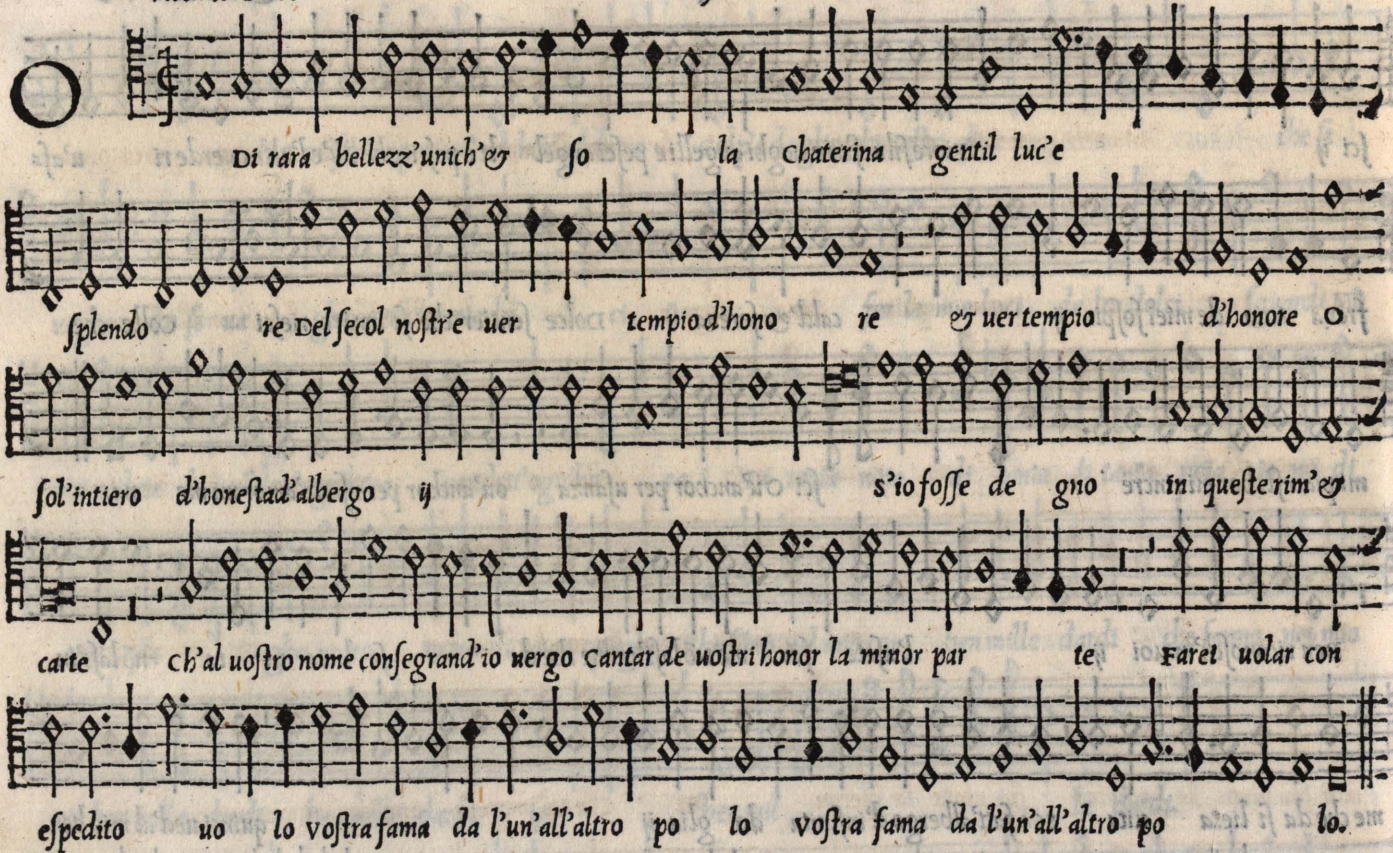 O
Di rara bellezz'unich'& ſo la Chaterina gentil luc'e
ſplendo re Del ſecol noſtr'e uer tempio d'hono re & uer tempio d'honore O
ſol'intiero d'honeſtad'albergo ij s'io foſſe de gno in queſte rim'&
carte Ch'al uoſtro nome conſegrand'io uergo Cantar de uoſtri honor la minor par te Farei uolar con
eſpedito uo lo voſtra fama da l'un'all'altro po lo voſtra fama da l'un'all'altro po lo.